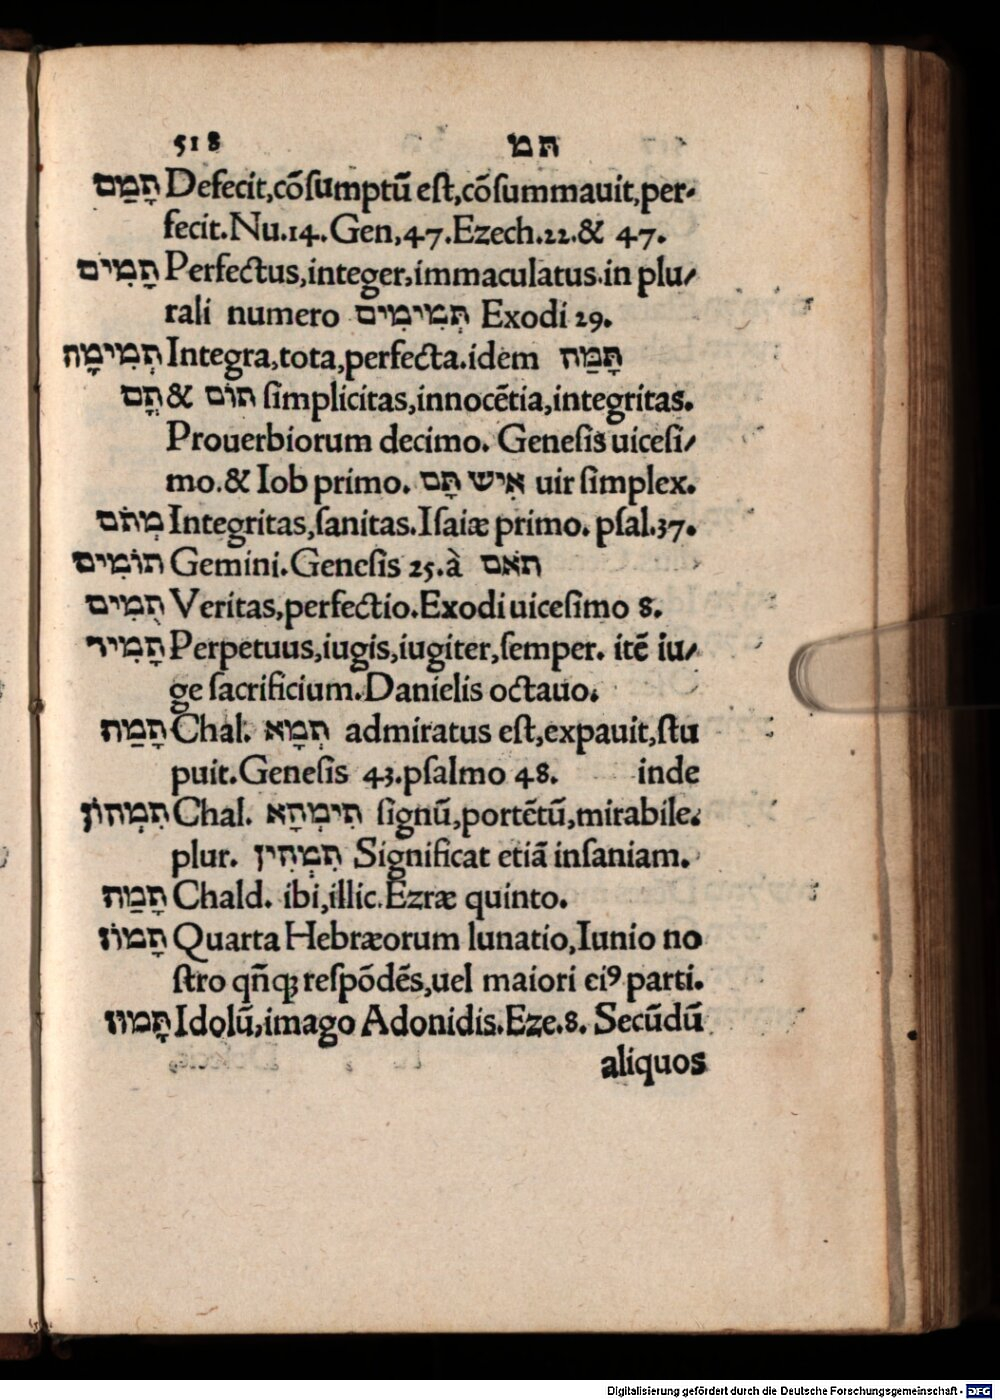 518 תּמ
תָּמַם Defecit,cõſumptũ eſt,cõſummauit,per-
fecit.Nu.14.Gen,47.Ezech.22.& 47.
תָּמִים Perfectus,integer,immaculatus.in plu/
rali numero תְּמִימִים Exodi 29.
תְּמִימָה Integra,tota,perfecta.idem תָּמַּה
תָּם & תום ſimplicitas,innocẽtia,integritas.
Prouerbiorum decimo. Geneſis uiceſi/
mo.& Iob primo. אִיש תָּם uir ſimplex.
מְתֹם Integritas,ſanitas.Iſaiæ primo. pſal.37.
תוֹמִים Gemini.Geneſis 25.à תאֹם
תֻּמִים Veritas,perfectio.Exodi uiceſimo 8.
תָּמִיד Perpetuus,iugis,iugiter,ſemper. itẽ iu/
ge ſacrificium.Danielis octauo.
תָּמַה Chal. תְּמָא admiratus eſt,expauit,ſtu
puit.Geneſis 43.pſalmo 48. inde
תִּמְהוֹן Chal. תִּימְהָא ſignũ,portẽtũ,mirabile.
plur. תִּמְהִין Significat etiã inſaniam.
תָּמַּה Chald. ibi,illic.Ezræ quinto.
תָּמוּז Quarta Hebræorum lunatio,Iunio no
ſtro qñqꝫ reſpõdẽs,uel maiori eiꝰ parti.
תָּמוּז Idolũ,imago Adonidis.Eze.8. Secũdũ
aliquos
Digitalisierung gefördert durch die Deutsche Forschungsgemeinschaft - DFG